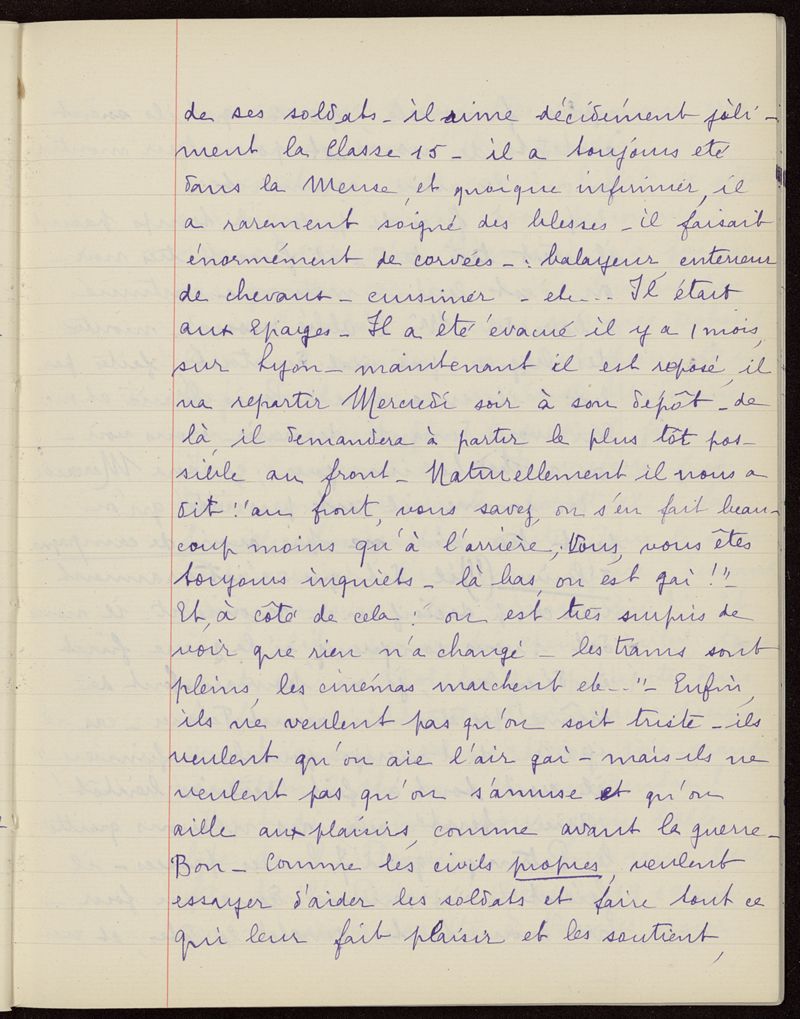 de ses soldats - il aime décidément joli-
ment la Classe 15 - il a toujours été
dans la Meuse, et quoique infirmier, il
a rarement soigné des blessés - il faisait
énormément de corvées - : balayeur, enterreur
de chevaux - cuisinier - etc... Il était
aux Eparges - Il a été évacué il y a 1 mois,
sur Lyon - maintenant il est reposé, il
va repartir Mercredi soir à son dépôt - de
là, il demandera à partir le plus tôt pos-
sible au front - Naturellement il nous a
dit : "au front, vous savez, on s'en fait beau-
coup moins qu'à l'arrière ; Vous, vous êtes
toujours inquiets - là bas, on est gai !"
Et, à côté de cela : "on est très surpris de
voir que rien n'a changé - les trams sont
pleins, les cinémas marchent etc..." - Enfin,
ils ne veulent pas qu'on soit triste - ils
veulent qu'on aie l'air gai - mais ils ne
veulent pas qu'on s'amuse et qu'on
aille aux plaisirs, comme avant la guerre -
Bon - Comme les civils propres, veulent
essayer d'aider les soldats et faire tout ce
qui leur fait plaisir et les soutient,